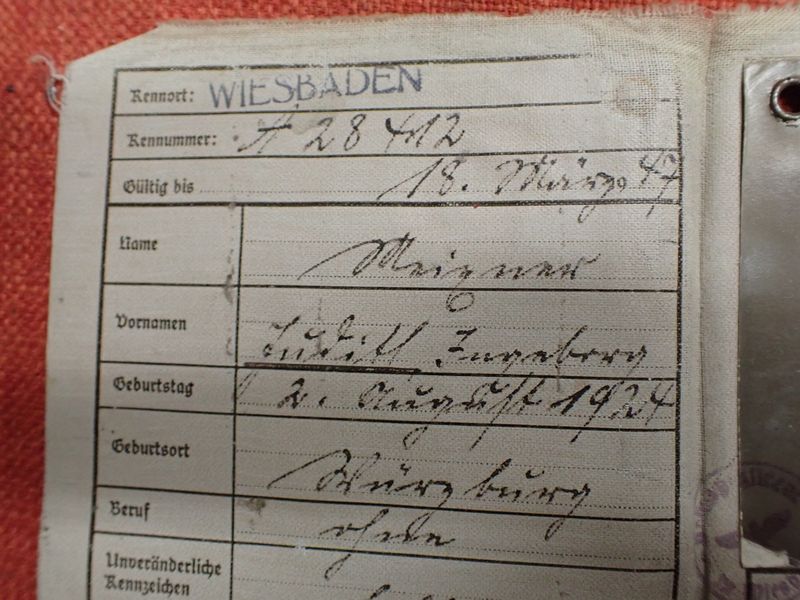 Kennort: WIESBADEN
Kennummer: A 28412
Gültig bis 18. März 47
Name
Vornamen Judith Ingeborg
Geburtstag 2. August 1924
Geburtsort Würzburg
Beruf ohne
Unveränderliche
Kennzeichen